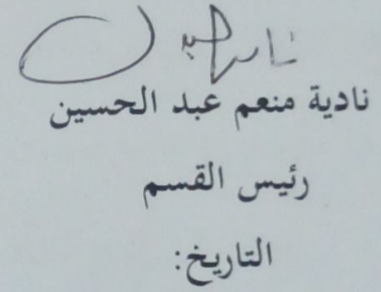 نادية منعم عبد الحسين
رئيس القسم
التاريخ: